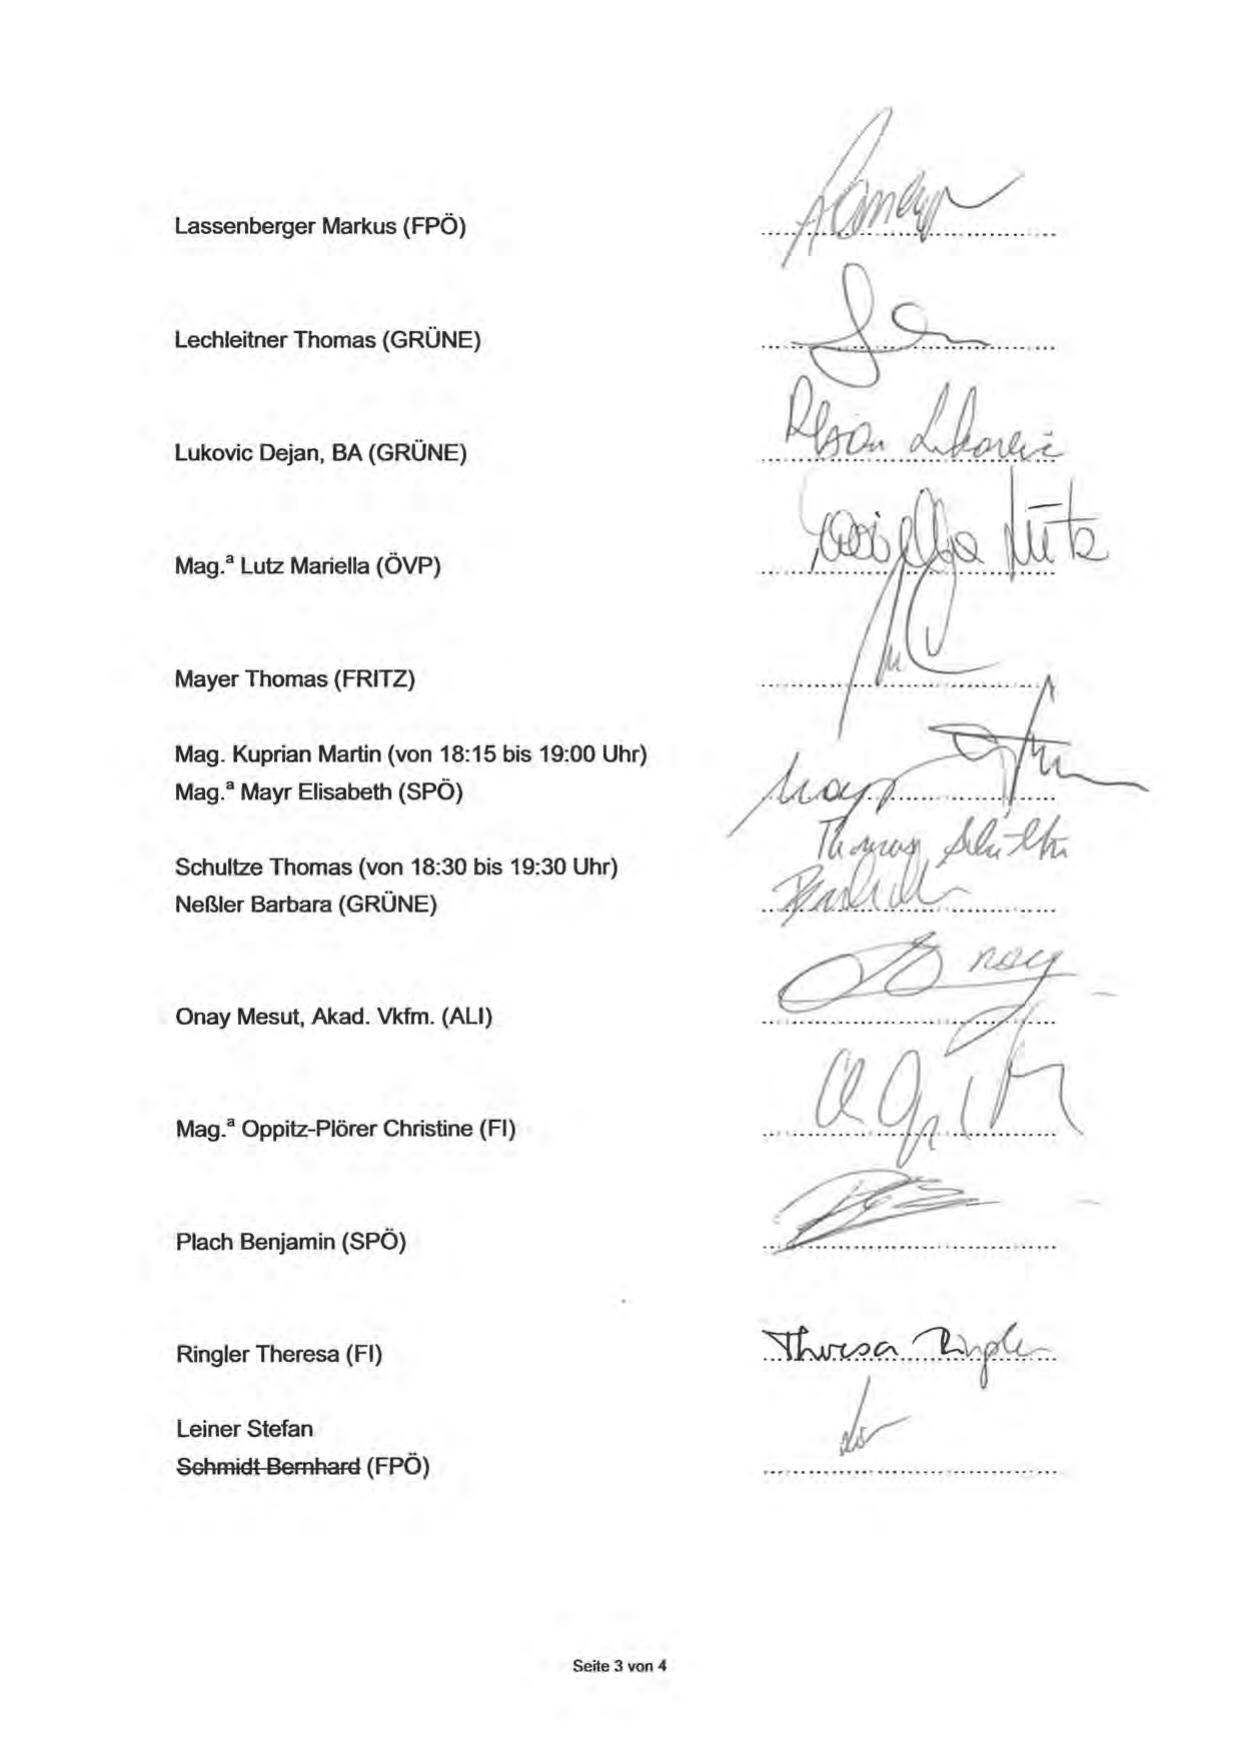 Lassenberger Markus (FPÖ)
Lechleitner Thomas (GRÜNE)
Lukovic Dejan, BA (GRÜNE) Dejan Lukovic
Mag.ª Lutz Mariella (ÖVP) Mariella Lutz
Mayer Thomas (FRITZ)
Mag. Kuprian Martin (von 18:15 bis 19:00 Uhr)
Mag.ª Mayr Elisabeth (SPÖ) Mayr
Schultze Thomas (von 18:30 bis 19:30 Uhr) Thomas Schultze
Neßler Barbara (GRÜNE)
Onay Mesut, Akad. Vkfm. (ALI) Onay
Mag.ª Oppitz-Plörer Christine (FI)
Plach Benjamin (SPÖ)
Ringler Theresa (FI) Theresa Ringler
Leiner Stefan
Schmidt Bernhard (FPÖ)
Seite 3 von 4